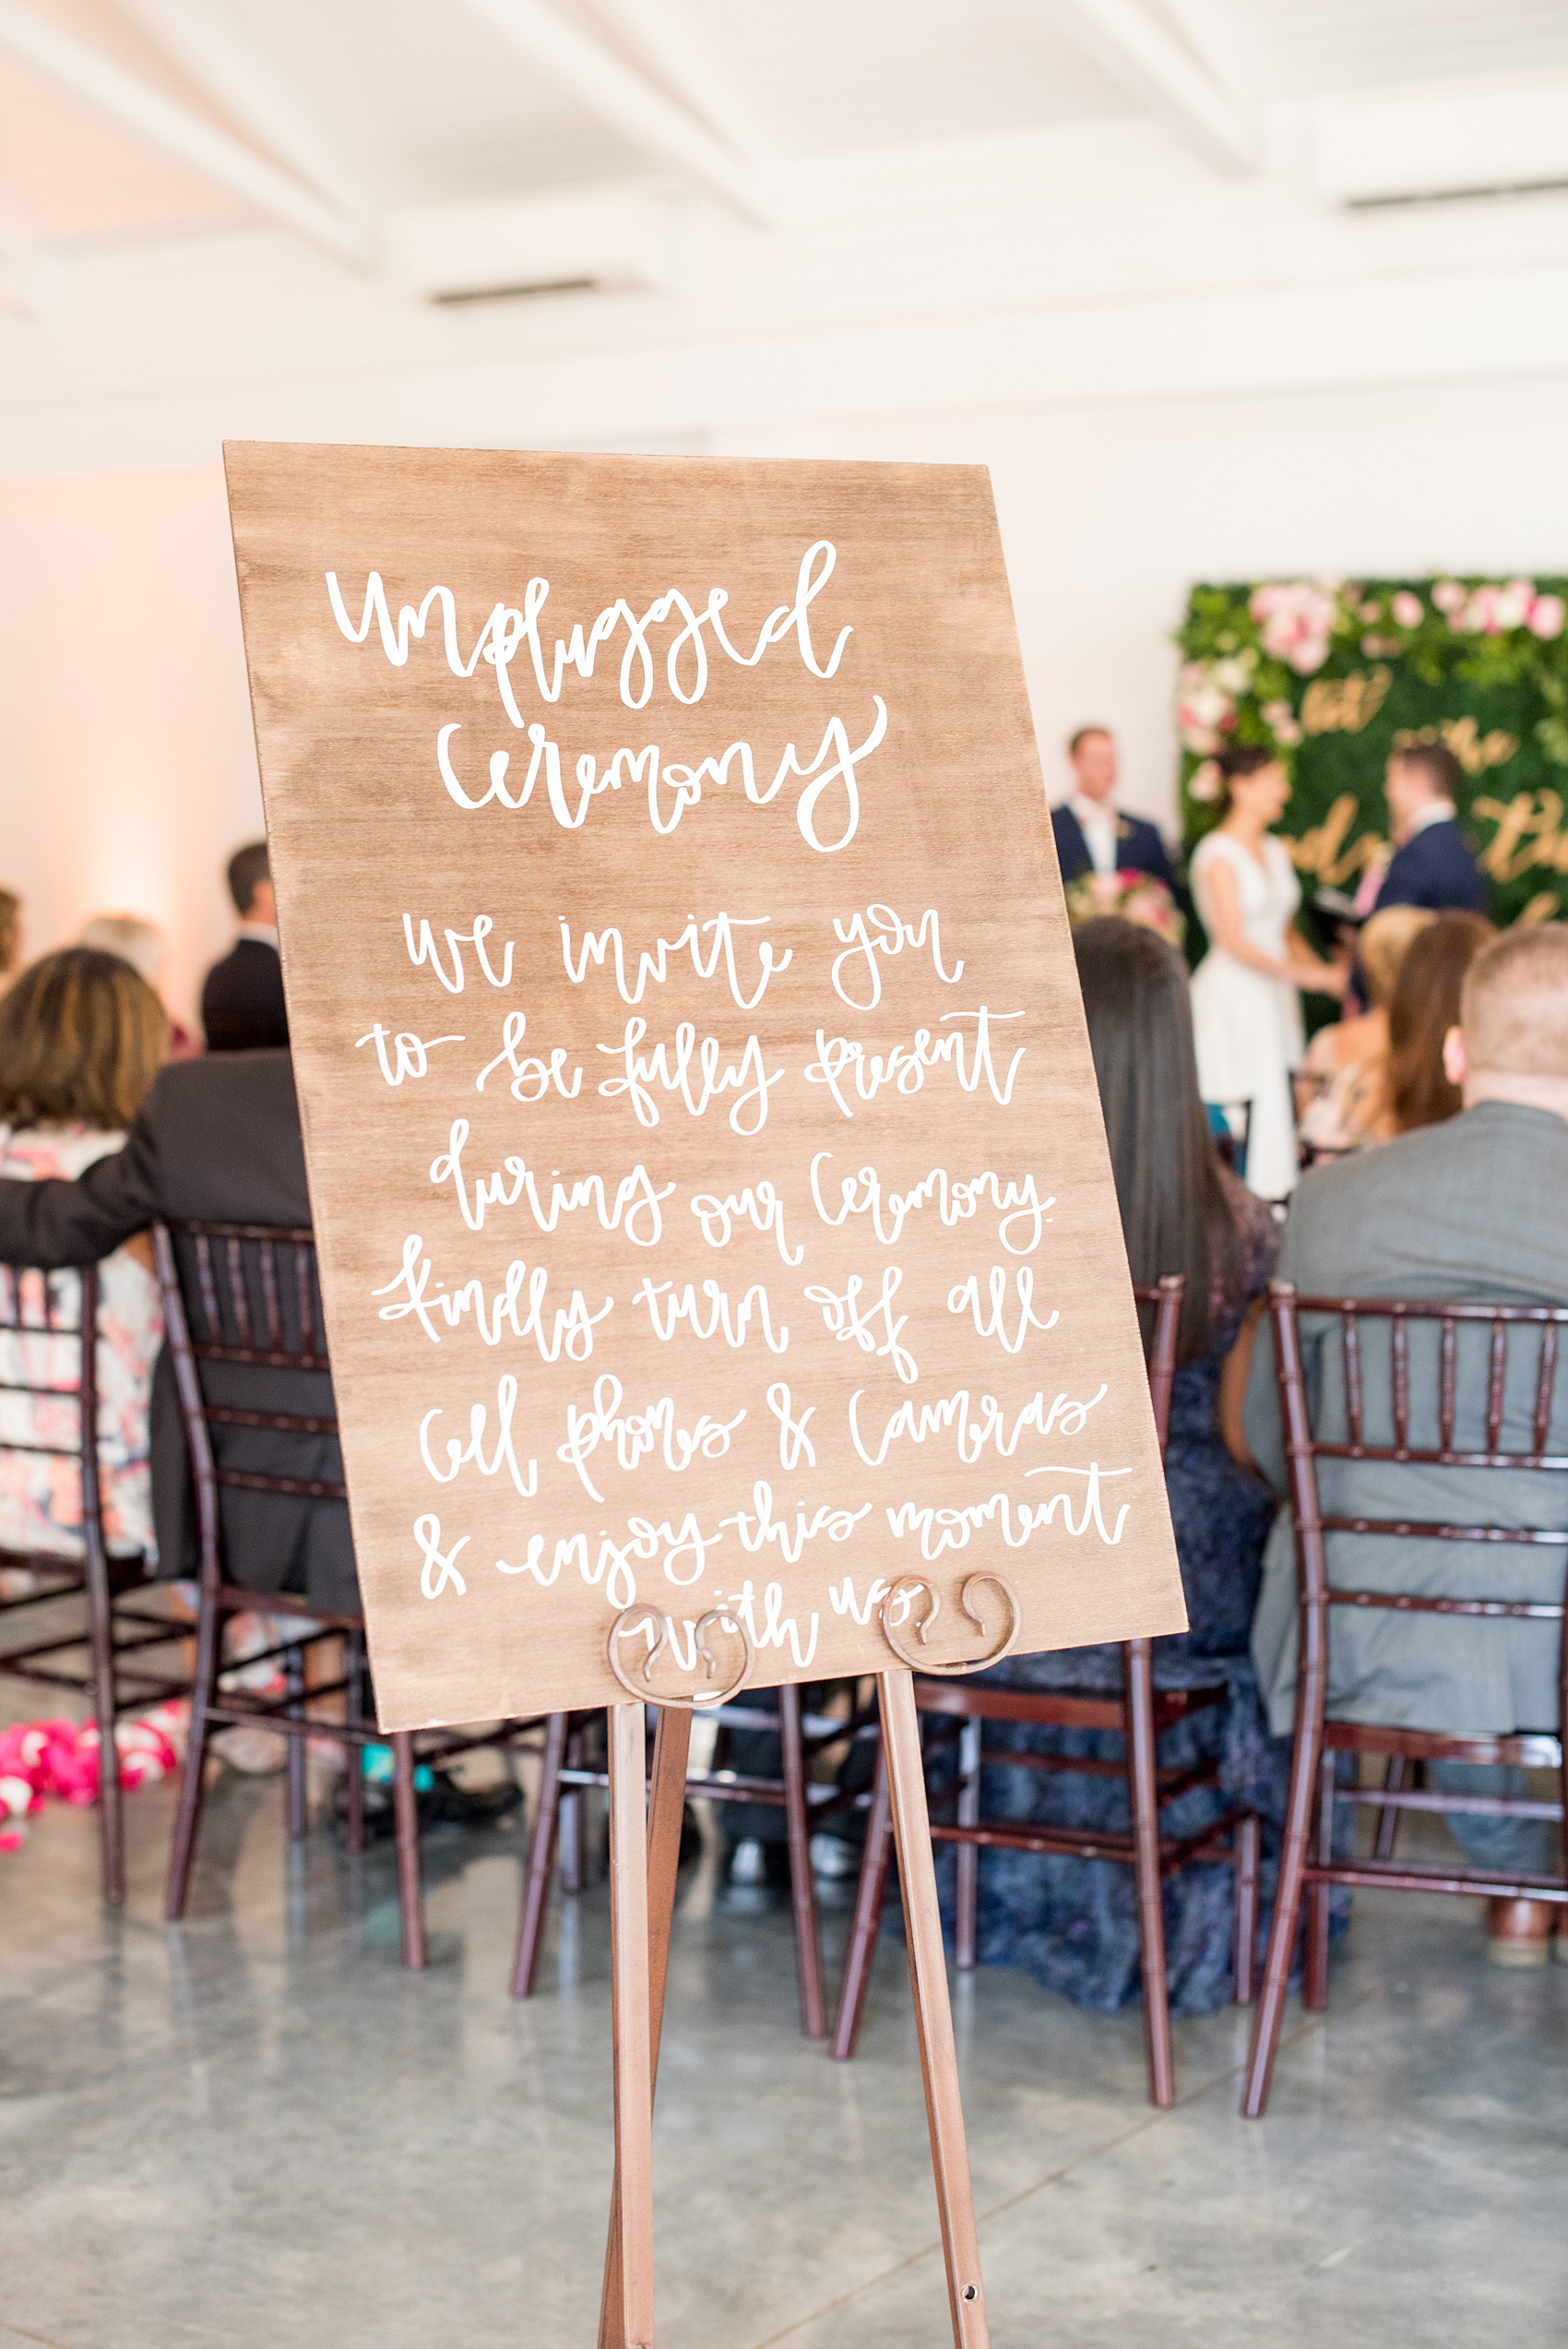 unplugged
ceremony
we invite you
to be fully present
during our ceremony.
kindly turn off all
cell phones & cameras
& enjoy this moment
with us
eat